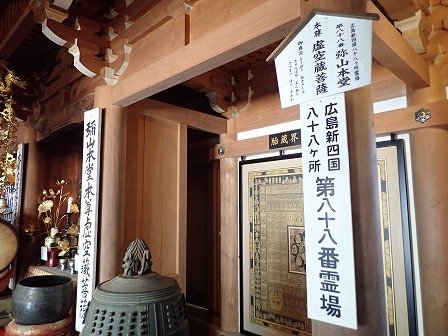 広島新四国八十八ケ所
第八十八番 弥山本堂
本尊 虚空蔵菩薩
広島新四国
八十八ヶ所
第八十八番霊場
胎蔵界
弥山本堂本尊虚空蔵菩